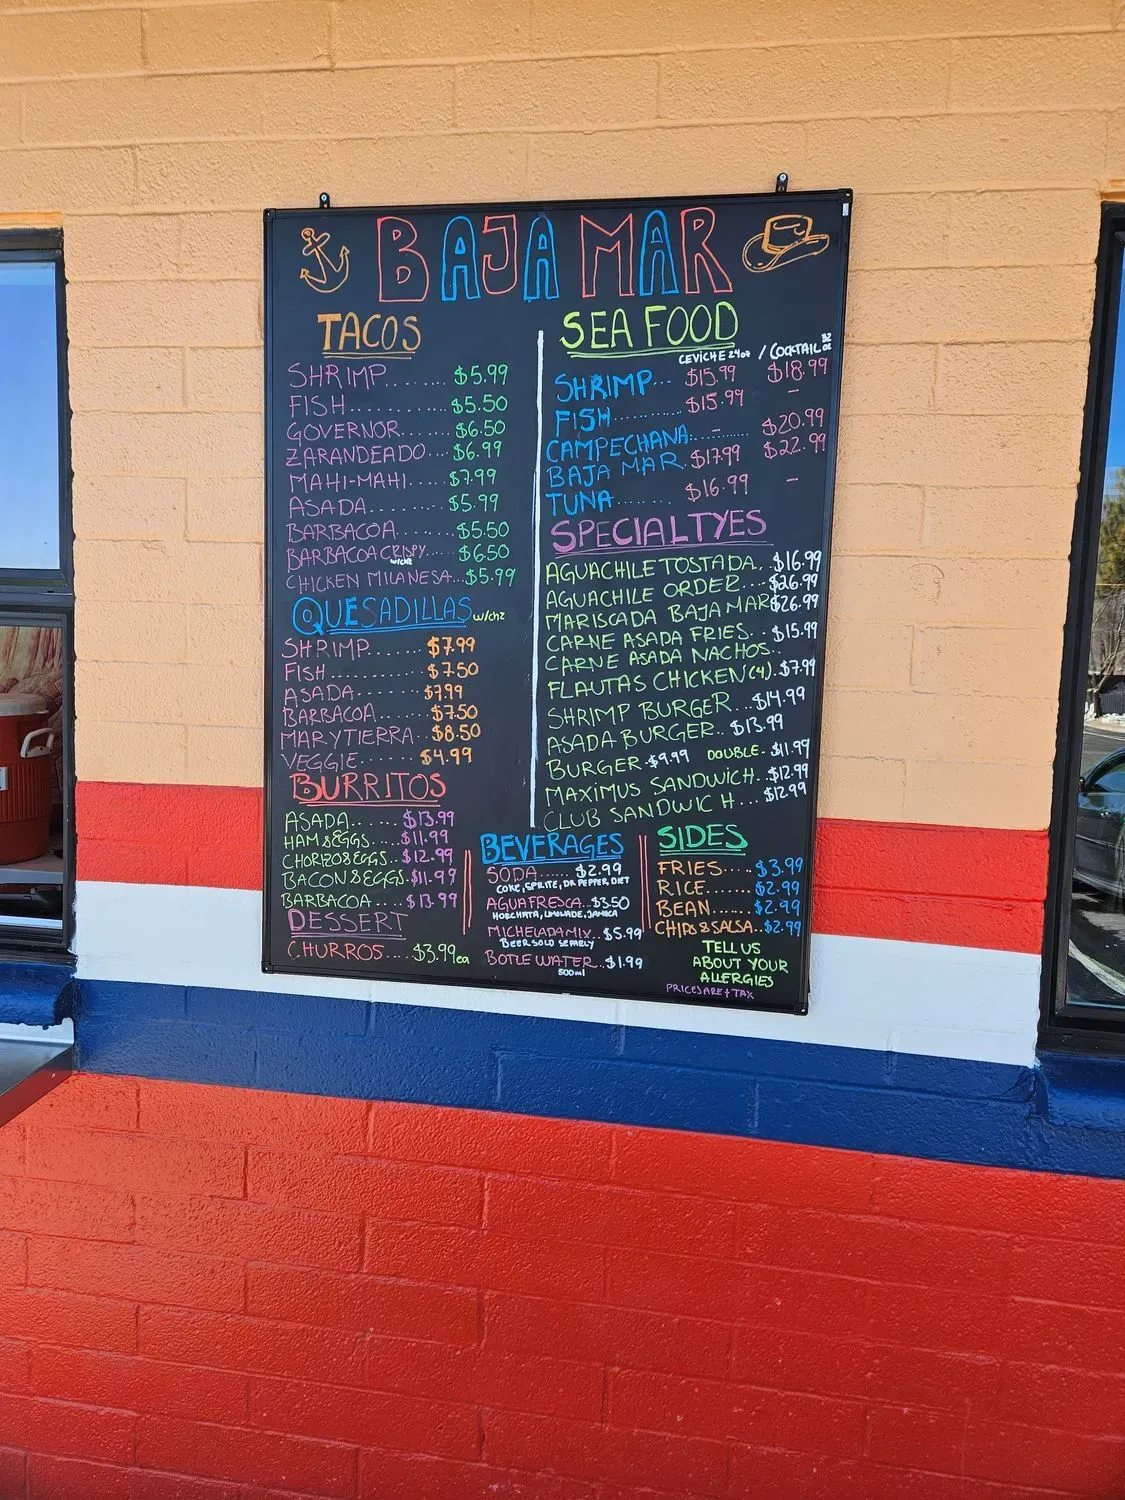 BAJA MAR
TACOS
SHRIMP........ $5.99
FISH............ $5.50
GOVERNOR....... $6.50
ZARANDEADO... $6.99
MAHI-MAHI..... $7.99
ASADA......... $5.99
BARBACOA....... $5.50
BARBACOA CRISPY..... $6.50
w/chz
CHICKEN MILANESA...$5.99
QUESADILLAS w/chz
SHRIMP....... $7.99
FISH......... $7.50
ASADA....... $7.99
BARBACOA.... $7.50
MARYTIERRA.. $8.50
VEGGIE...... $4.99
BURRITOS
ASADA....... $13.99
HAM & EGGS... $11.99
CHORIZO & EGGS.. $12.99
BACON & EGGS. $11.99
BARBACOA.... $13.99
DESSERT
CHURROS.... $3.99ea
SEA FOOD
CEVICHE 24oz / COCKTAIL 32 oz
SHRIMP... $15.99 $18.99
FISH.......... $15.99 -
CAMPECHANA......... - $20.99
BAJA MAR. $17.99 $22.99
TUNA........ $16.99 -
SPECIALTYES
AGUACHILE TOSTADA.. $16.99
AGUACHILE ORDER... $26.99
MARISCADA BAJA MAR $26.99
CARNE ASADA FRIES... $15.99
CARNE ASADA NACHOS..
FLAUTAS CHICKEN (4). $7.99
SHRIMP BURGER... $14.99
ASADA BURGER.. $13.99
BURGER. $9.99 DOUBLE. $11.99
MAXIMUS SANDWICH.. $12.99
CLUB SANDWICH... $12.99
BEVERAGES
SODA...... $2.99
COKE, SPRITE, DR PEPPER, DIET
AGUA FRESCA.. $3.50
HORCHATA, LIMONADE, JAMICA
MICHELADA MIX.. $5.99
BEER SOLD SEPARLY
BOTLE WATER.. $1.99
500ml
SIDES
FRIES.... $3.99
RICE....... $2.99
BEAN...... $2.99
CHIPS & SALSA.. $2.99
TELL US
ABOUT YOUR
ALLERGIES
PRICES ARE + TAX